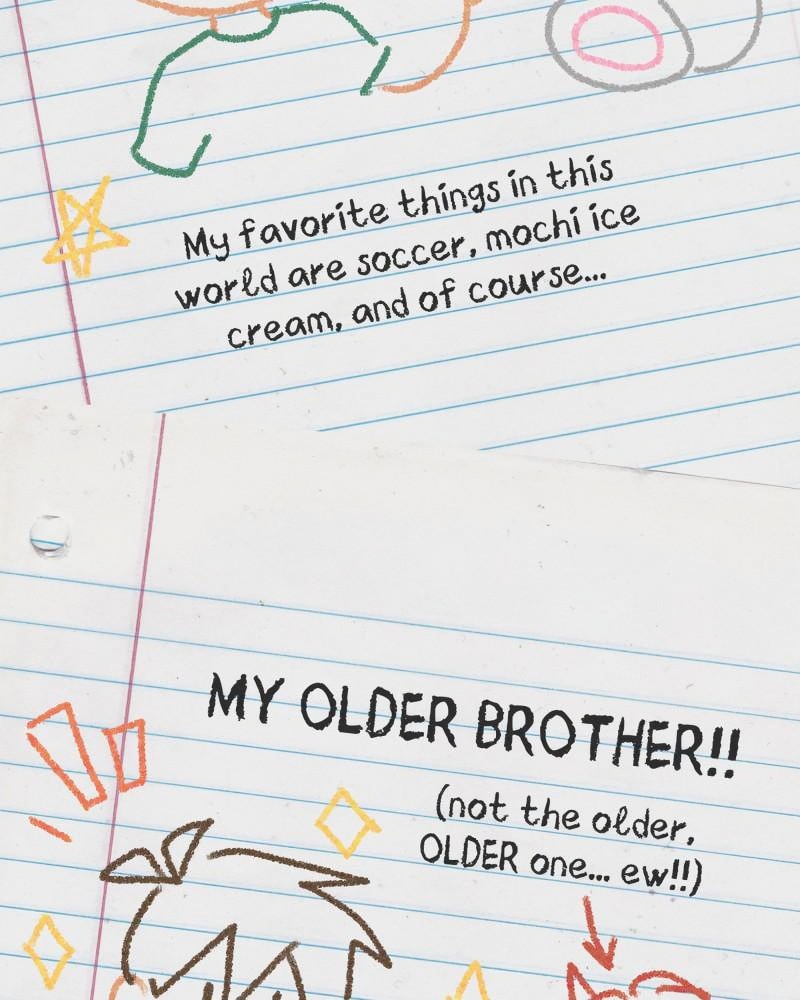 My favorite things in this
world are soccer, mochi ice
cream, and of course...
MY OLDER BROTHER!!
(not the older,
OLDER one... ew!!)